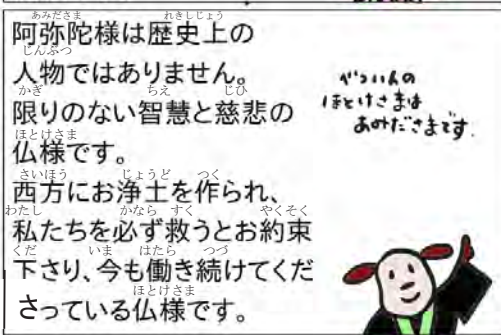 阿弥陀様は歴史上の
人物ではありません。
限りのない智慧と慈悲の
仏様です。
西方にお浄土を作られ、
私たちを必ず救うとお約束
下さり、今も働き続けてくだ
さっている仏様です。
べついんの
ほとけさまは
あみださまです.